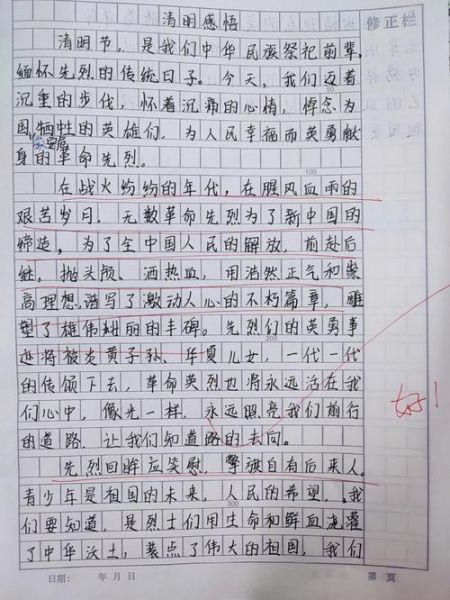 清明感悟
修正栏
清明节，是我们中华民族祭祀前辈，
缅怀先烈的传统日子。今天，我们迈着
50
沉重的步伐，怀着沉痛的心情，悼念为
国家安危牺牲的英雄们，为人民幸福而英勇献
身的革命先烈。
100
在战火纷纷的年代，在腥风血雨的
艰苦岁月，无数革命先烈为了新中国的
缔造，为了全中国人民的解放，前赴后
继，抛头颅、洒热血，用浩然正气和崇
高理想，谱写了激动人心的不朽篇章，雕
塑了雄伟树丽的丰碑。先烈们的英勇事
200
迹将被炎黄子孙、华夏儿女，一代一代
的传颂下去，革命英烈也将永远活在我
们心中，像光一样，永远照亮我们前行
的道路，让我们知道路的去向。
好！
先烈回眸应笑慰，擎旗自有后来人。
青少年是祖国的未来，人民的希望，我
300
们要知道，是烈士们用生命和鲜血浇灌
了中华沃土，装点了伟大的祖国，我们
日期： 年 月 日
第 页